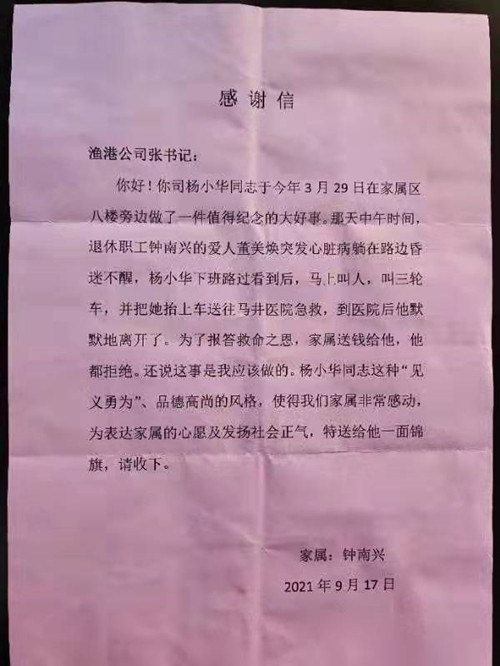 感谢信
渔港公司张书记：
你好！你司杨小华同志于今年3月29日在家属区
八楼旁边做了一件值得纪念的大好事。那天中午时间，
退休职工钟南兴的爱人董美焕突发心脏病躺在路边昏
迷不醒，杨小华下班路过看到后，马上叫人，叫三轮
车，并把她抬上车送往马井医院急救，到医院后他默
默地离开了。为了报答救命之恩，家属送钱给他，他
都拒绝。还说这事是我应该做的。杨小华同志这种“见
义勇为”、品德高尚的风格，使得我们家属非常感动，
为表达家属的心愿及发扬社会正气，特送给他一面锦
旗，请收下。
家属：钟南兴
2021年9月17日